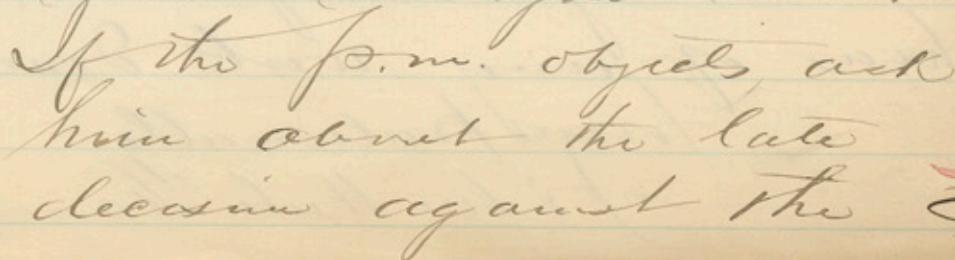 If the p.m. objects, ask
him about the late
decision against the